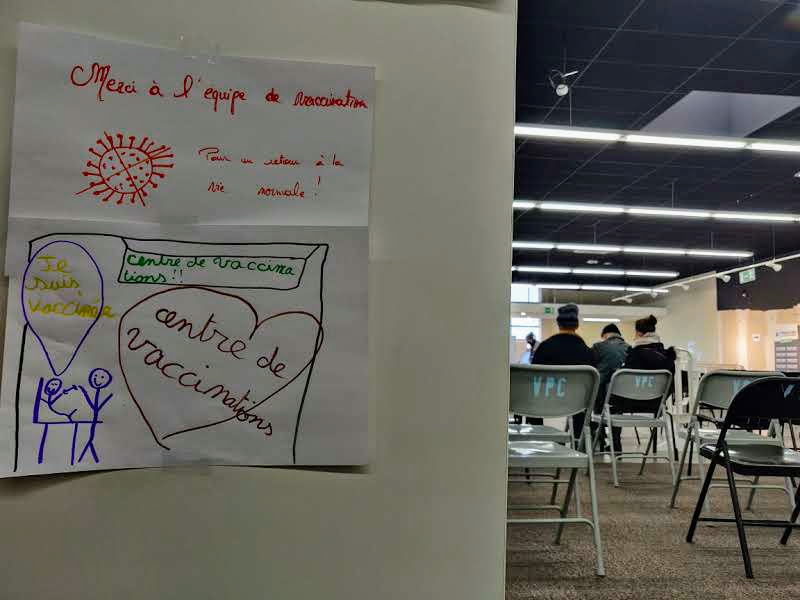 Merci à l'équipe de vaccination
Pour un retour à la
vie normale !
centre de vaccina
tions!!
Je
suis
vaccinée
centre de
vaccinations
VPC
VPC